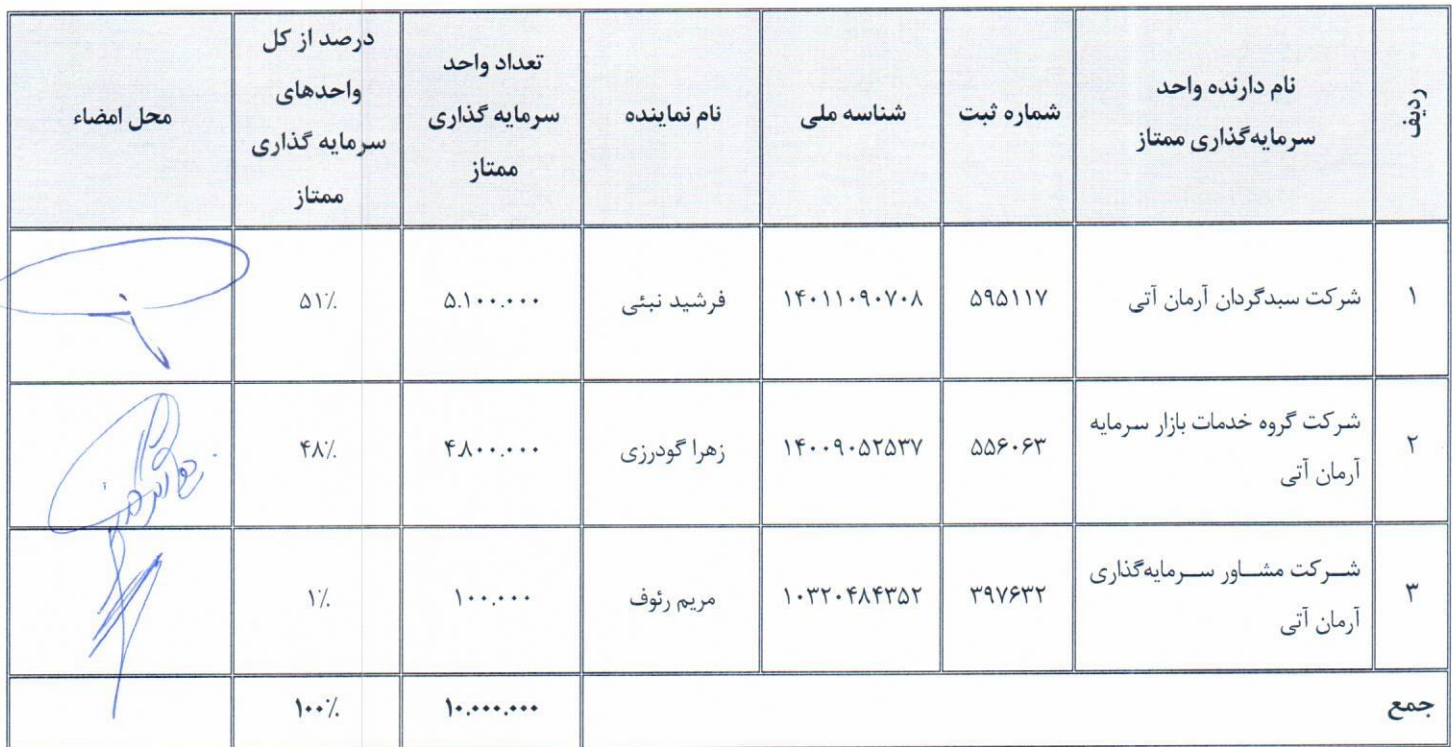 ردیف
نام دارنده واحد
سرمایه‌گذاری ممتاز
شماره ثبت
شناسه ملی
نام نماینده
تعداد واحد
سرمایه گذاری
ممتاز
درصد از کل
واحدهای
سرمایه گذاری
ممتاز
محل امضاء
۱
شرکت سبدگردان آرمان آتی
۵۹۵۱۱۷
۱۴۰۱۱۰۹۰۷۰۸
فرشید نبئی
۵.۱۰۰.۰۰۰
۵۱٪
۲
شرکت گروه خدمات بازار سرمایه
آرمان آتی
۵۵۶۰۶۳
۱۴۰۰۹۰۵۲۵۳۷
زهرا گودرزی
۴.۸۰۰.۰۰۰
۴۸٪
۳
شرکت مشاور سرمایه‌گذاری
آرمان آتی
۳۹۷۶۳۲
۱۰۳۲۰۴۸۴۳۵۲
مریم رئوف
۱۰۰.۰۰۰
۱٪
جمع
۱۰.۰۰۰.۰۰۰
۱۰۰٪